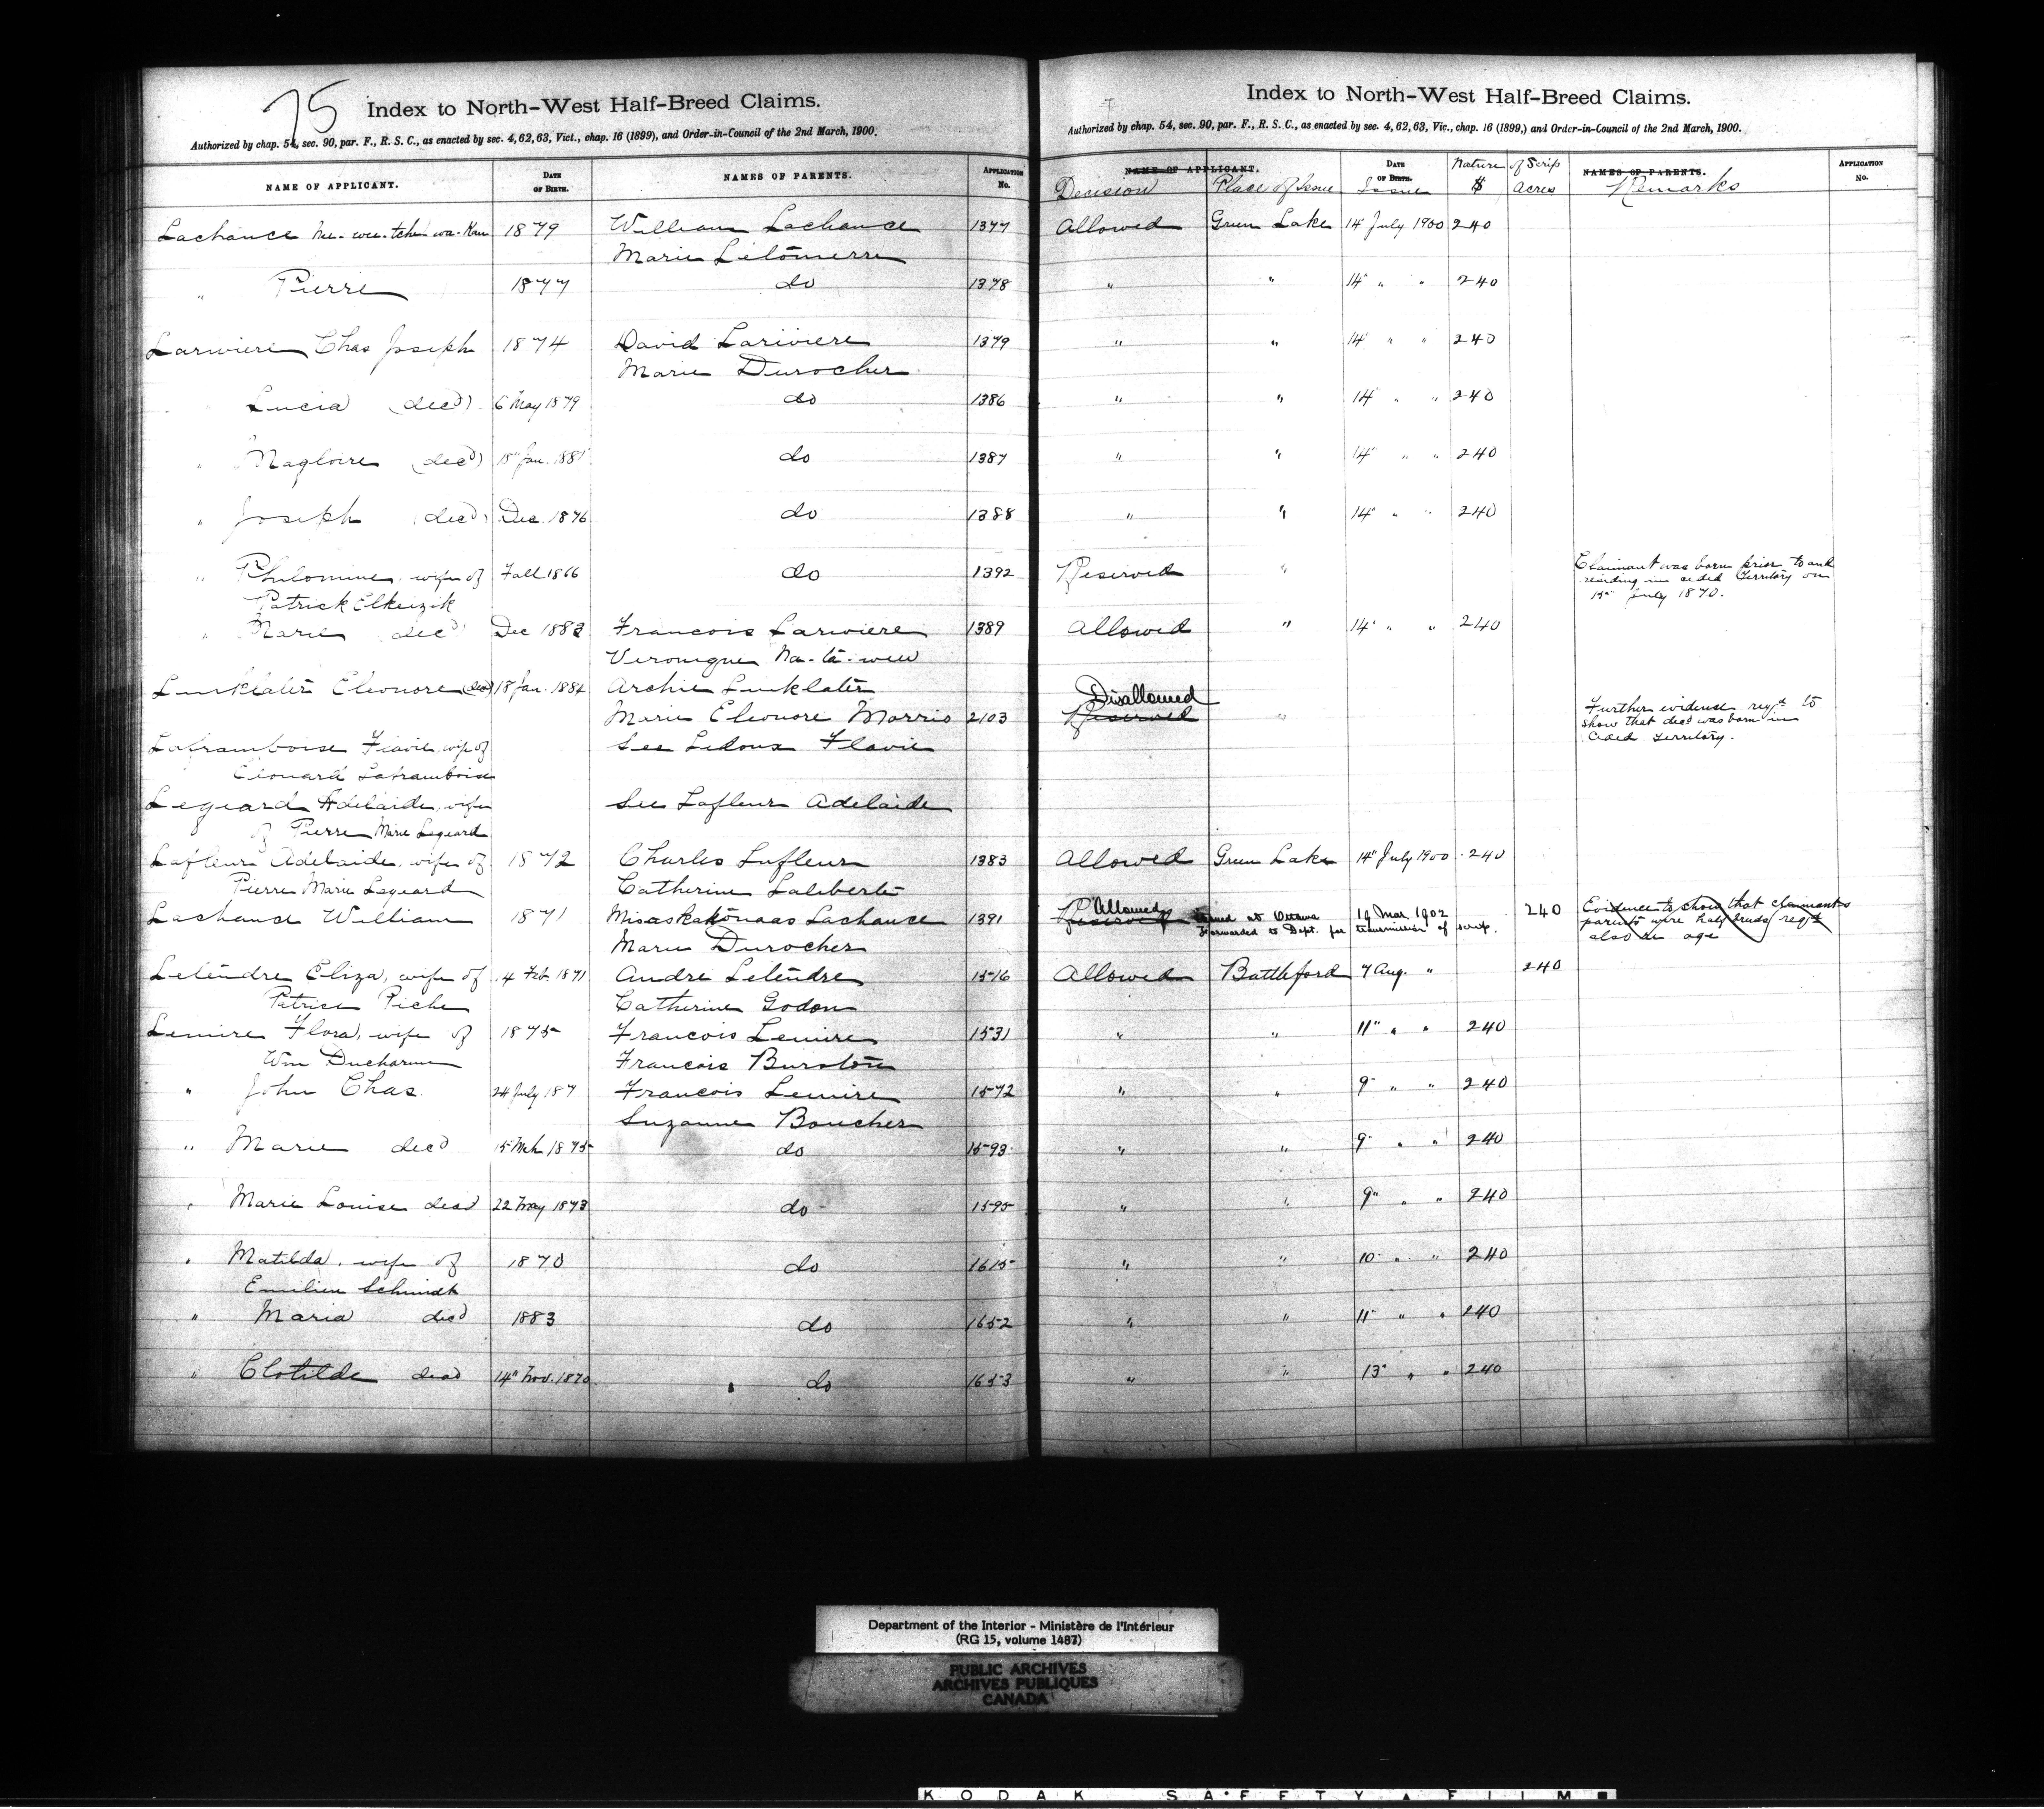 75
Index to North-West Half-Breed Claims.
Authorized by chap. 54, sec. 90, par. F., R. S. C., as enacted by sec. 4, 62, 63, Vict., chap. 16 (1899), and Order-in-Council of the 2nd March, 1900.
NAME OF APPLICANT. DATE OF BIRTH. NAMES OF PARENTS. APPLICATION No.
Lachance 1879 William Lachance 1377
Marie Letonnerre
" Pierre 1877 do 1378
Lariviere Chas Joseph 1874 David Lariviere 1379
Marie Durocher
" Lucia (decd) 6 May 1879 do 1386
" Magloire (decd) 15" Jan. 1881 do 1387
" Joseph (decd) Dec. 1876 do 1388
" Philomine, wife of Fall 1866 do 1392
Patrick
" Marie decd Dec 1883 Francois Lariviere 1389
Veronique
Linklater Eleonore (decd) 18 Jan. 1884 Archie Linklater
Marie Eleonore Morris 2103
Laframboise Flavie, wife of See Ledoux Flavie
Edouard Laframboise
Legeard Adelaide, wife See Lafleur Adelaide
of Pierre Marie Legeard
Lafleur Adelaide, wife of 1872 Charles Lafleur 1383
Pierre Marie Legeard Catherine Laliberte
Lachance William 1871 Lachance 1391
Marie Durocher
Letendre Eliza, wife of 4 Feb. 1871 Andre Letendre 1516
Patrice Piche Catherine Godon
Lemire Flora, wife of 1875 Francois Lemire 1531
Wm Ducharme Francois Burston
" John Chas. 24 July 187 Francois Lemire 1572
Suzanne Boucher
" Marie decd 15 Mch 1875 do 1593
" Marie Louise decd 22 May 1873 do 1595
" Matilda, wife of 1870 do 1615
Emilien Schmidt
" Maria decd 1883 do 1652
" Clotilde decd 14" Nov. 1870 do 1653
Index to North-West Half-Breed Claims.
Authorized by chap. 54, sec. 90, par. F., R. S. C., as enacted by sec. 4, 62, 63, Vic., chap. 16 (1899,) and Order-in-Council of the 2nd March, 1900.
NAME OF APPLICANT. DATE OF BIRTH. Nature of Scrip NAMES OF PARENTS. APPLICATION No.
Decision Place of Issue Issue $ Acres Remarks
Allowed Green Lake 14 July 1900 240
" " 14" " " 240
" " 14 " " 240
" " 14 " " 240
" " 14 " " 240
" " 14" " " 240
Reserved " Claimant was born prior to and
residing in ceded Territory on
15" July 1870.
Allowed " 14" " " 240
Disallowed
Reserved " Further evidence reqd to
show that decd was born in
Ceded Territory.
Allowed Green Lake 14" July 1900 240
Allowed
Reserved Issued at Ottawa 19 Mar. 1902 240 Evidence to show that claimants
Forwarded to Dept. for transmission of scrip. parents were half breeds reqd
also as age
Allowed Battleford 7 Aug. " 240
" " 11" " " 240
" " 9" " " 240
" " 9" " " 240
" " 9" " " 240
" " 10" " " 240
" " 11" " " 240
" " 13" " " 240
Department of the Interior - Ministère de l'Intérieur
(RG 15, volume 1487)
PUBLIC ARCHIVES
ARCHIVES PUBLIQUES
CANADA
KODAK SAFETY FILM